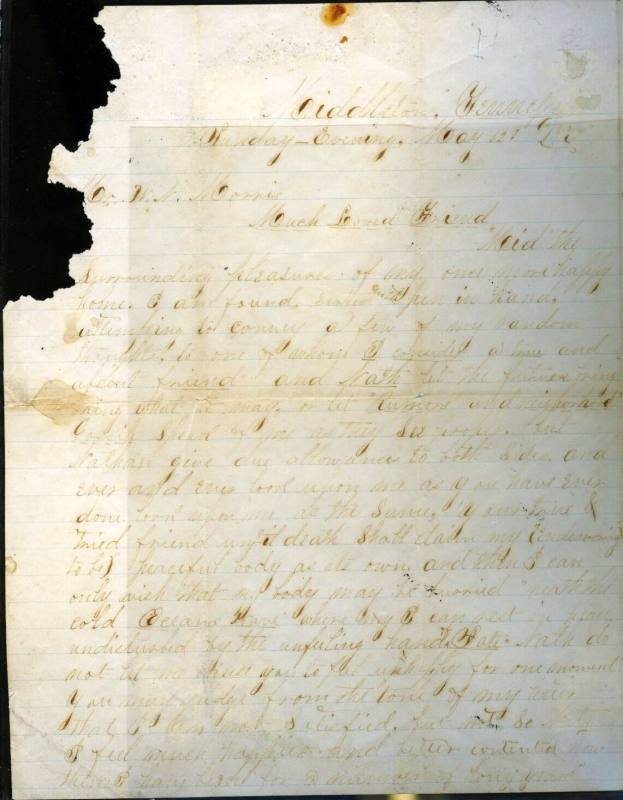 Middleton, Tennessee
Sunday-Evening, May 12th
Mr. W. N. Morris
Much Loved Friend
"Mid" the
Surrounding pleasures of my once more happy
home. I am found, seated with pen in hand,
attempting to convey a few of my random
thoughts to one of whom I consider a true and
friend and Nath let the future bring
what it may, or let Rumors and
Speak of me as they see proper. But
Nathan give due allowance to both sides and
ever and ever look upon me as you have ever
done, look upon me as the same, your true &
tried friend until death shall claim my (undeserving
to be) peaceful body as its own and then I can
only wish that my body may be burried 'neath the
cold Oceans Wave where my I can rest in peace
undisturbed by the unfeeling hand Fate. Nath do
not let me cause you to feel unhappy for one moment
You may judge from the tone of my
that I am not satisfied, but not So Nath
I feel much happier and better contented now
than I have been for